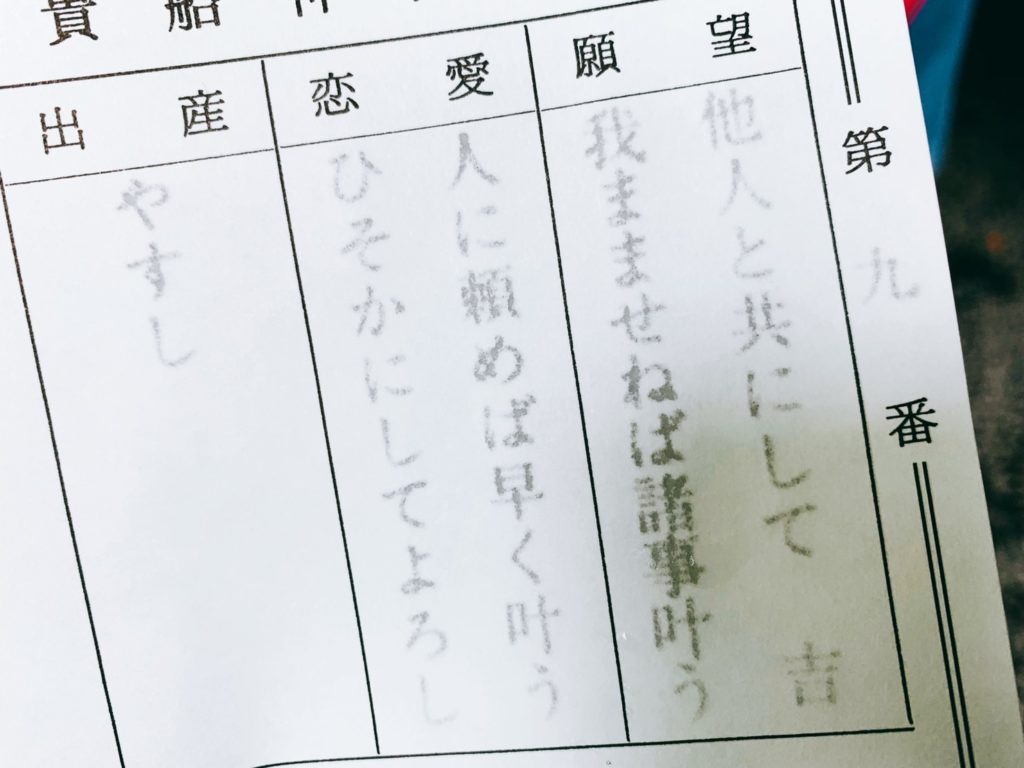 貴船
第九番
願望
他人と共にして 吉
我まませねば諸事叶う
恋愛
人に頼めば早く叶う
ひそかにしてよろし
出産
やすし